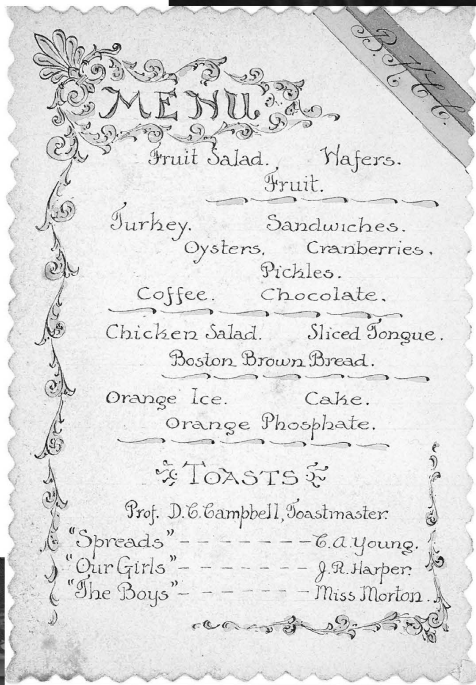 MENU
Fruit Salad. Wafers.
Fruit.
Turkey. Sandwiches.
Oysters. Cranberries.
Pickles.
Coffee. Chocolate.
Chicken Salad. Sliced Tongue.
Boston Brown Bread.
Orange Ice. Cake.
Orange Phosphate.
TOASTS
Prof. D.C. Campbell, Toastmaster.
"Spreads" - - - - - - - - C.A. Young.
"Our Girls" - - - - - - - J.R. Harper.
"The Boys" - - - - - - - Miss Morton.